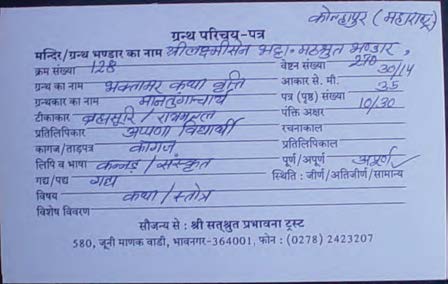 कोल्हापुर (महाराष्ट्र)
ग्रन्थ परिचय-पत्र
मन्दिर/ग्रन्थ भण्डार का नाम श्रीलक्ष्मीसेन भट्टा. मठश्रुत भण्डार,
क्रम संख्या 128 वेष्टन संख्या 270
ग्रन्थ का नाम भक्तामर कथा वृत्ति आकार से. मी. 30/14
ग्रन्थकार का नाम मानतुंगाचार्य पत्र (पृष्ठ) संख्या 35
टीकाकार ब्रह्मसूरि / रायमल्ल पंक्ति अक्षर 10/30
प्रतिलिपिकार अप्पणा विद्यार्थी रचनाकाल
कागज/ताड़पत्र कागज प्रतिलिपिकाल
लिपि व भाषा कन्नड़ / संस्कृत पूर्ण/अपूर्ण अपूर्ण
गद्य/पद्य गद्य स्थिति : जीर्ण/अतिजीर्ण/सामान्य
विषय कथा / स्तोत्र
विशेष विवरण
सौजन्य से : श्री सत्श्रुत प्रभावना ट्रस्ट
580, जूनी माणक वाडी, भावनगर-364001, फोन : (0278) 2423207